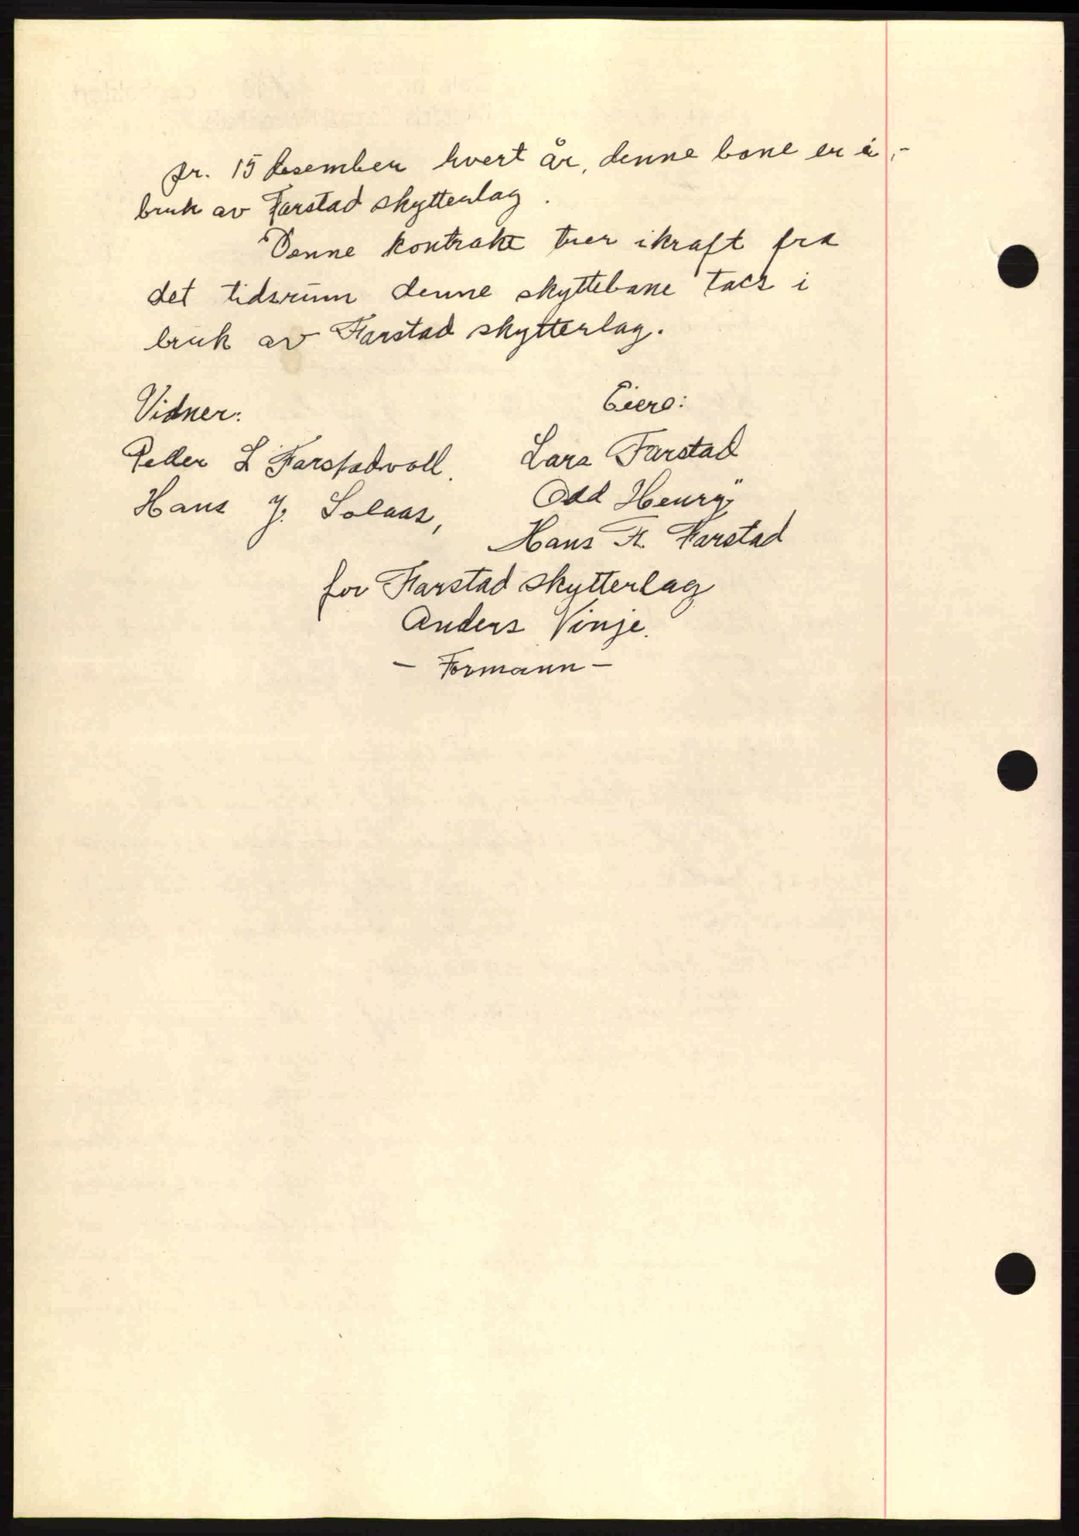 pr. 15 desember hvert år, denne bane er i,-
bruk av Farstad skytterlag.
Denne kontrakt trer ikraft fra
det tidsrum denne skyttebane taes i
bruk av Farstad skytterlag.
Vidner:
Peder L Farstadvoll.
Hans J. Solaas,
Eiere:
Lars Farstad
Odd Henry"
Hans Fr. Farstad
for Farstad skytterlag
Anders Vinje.
- Formann -